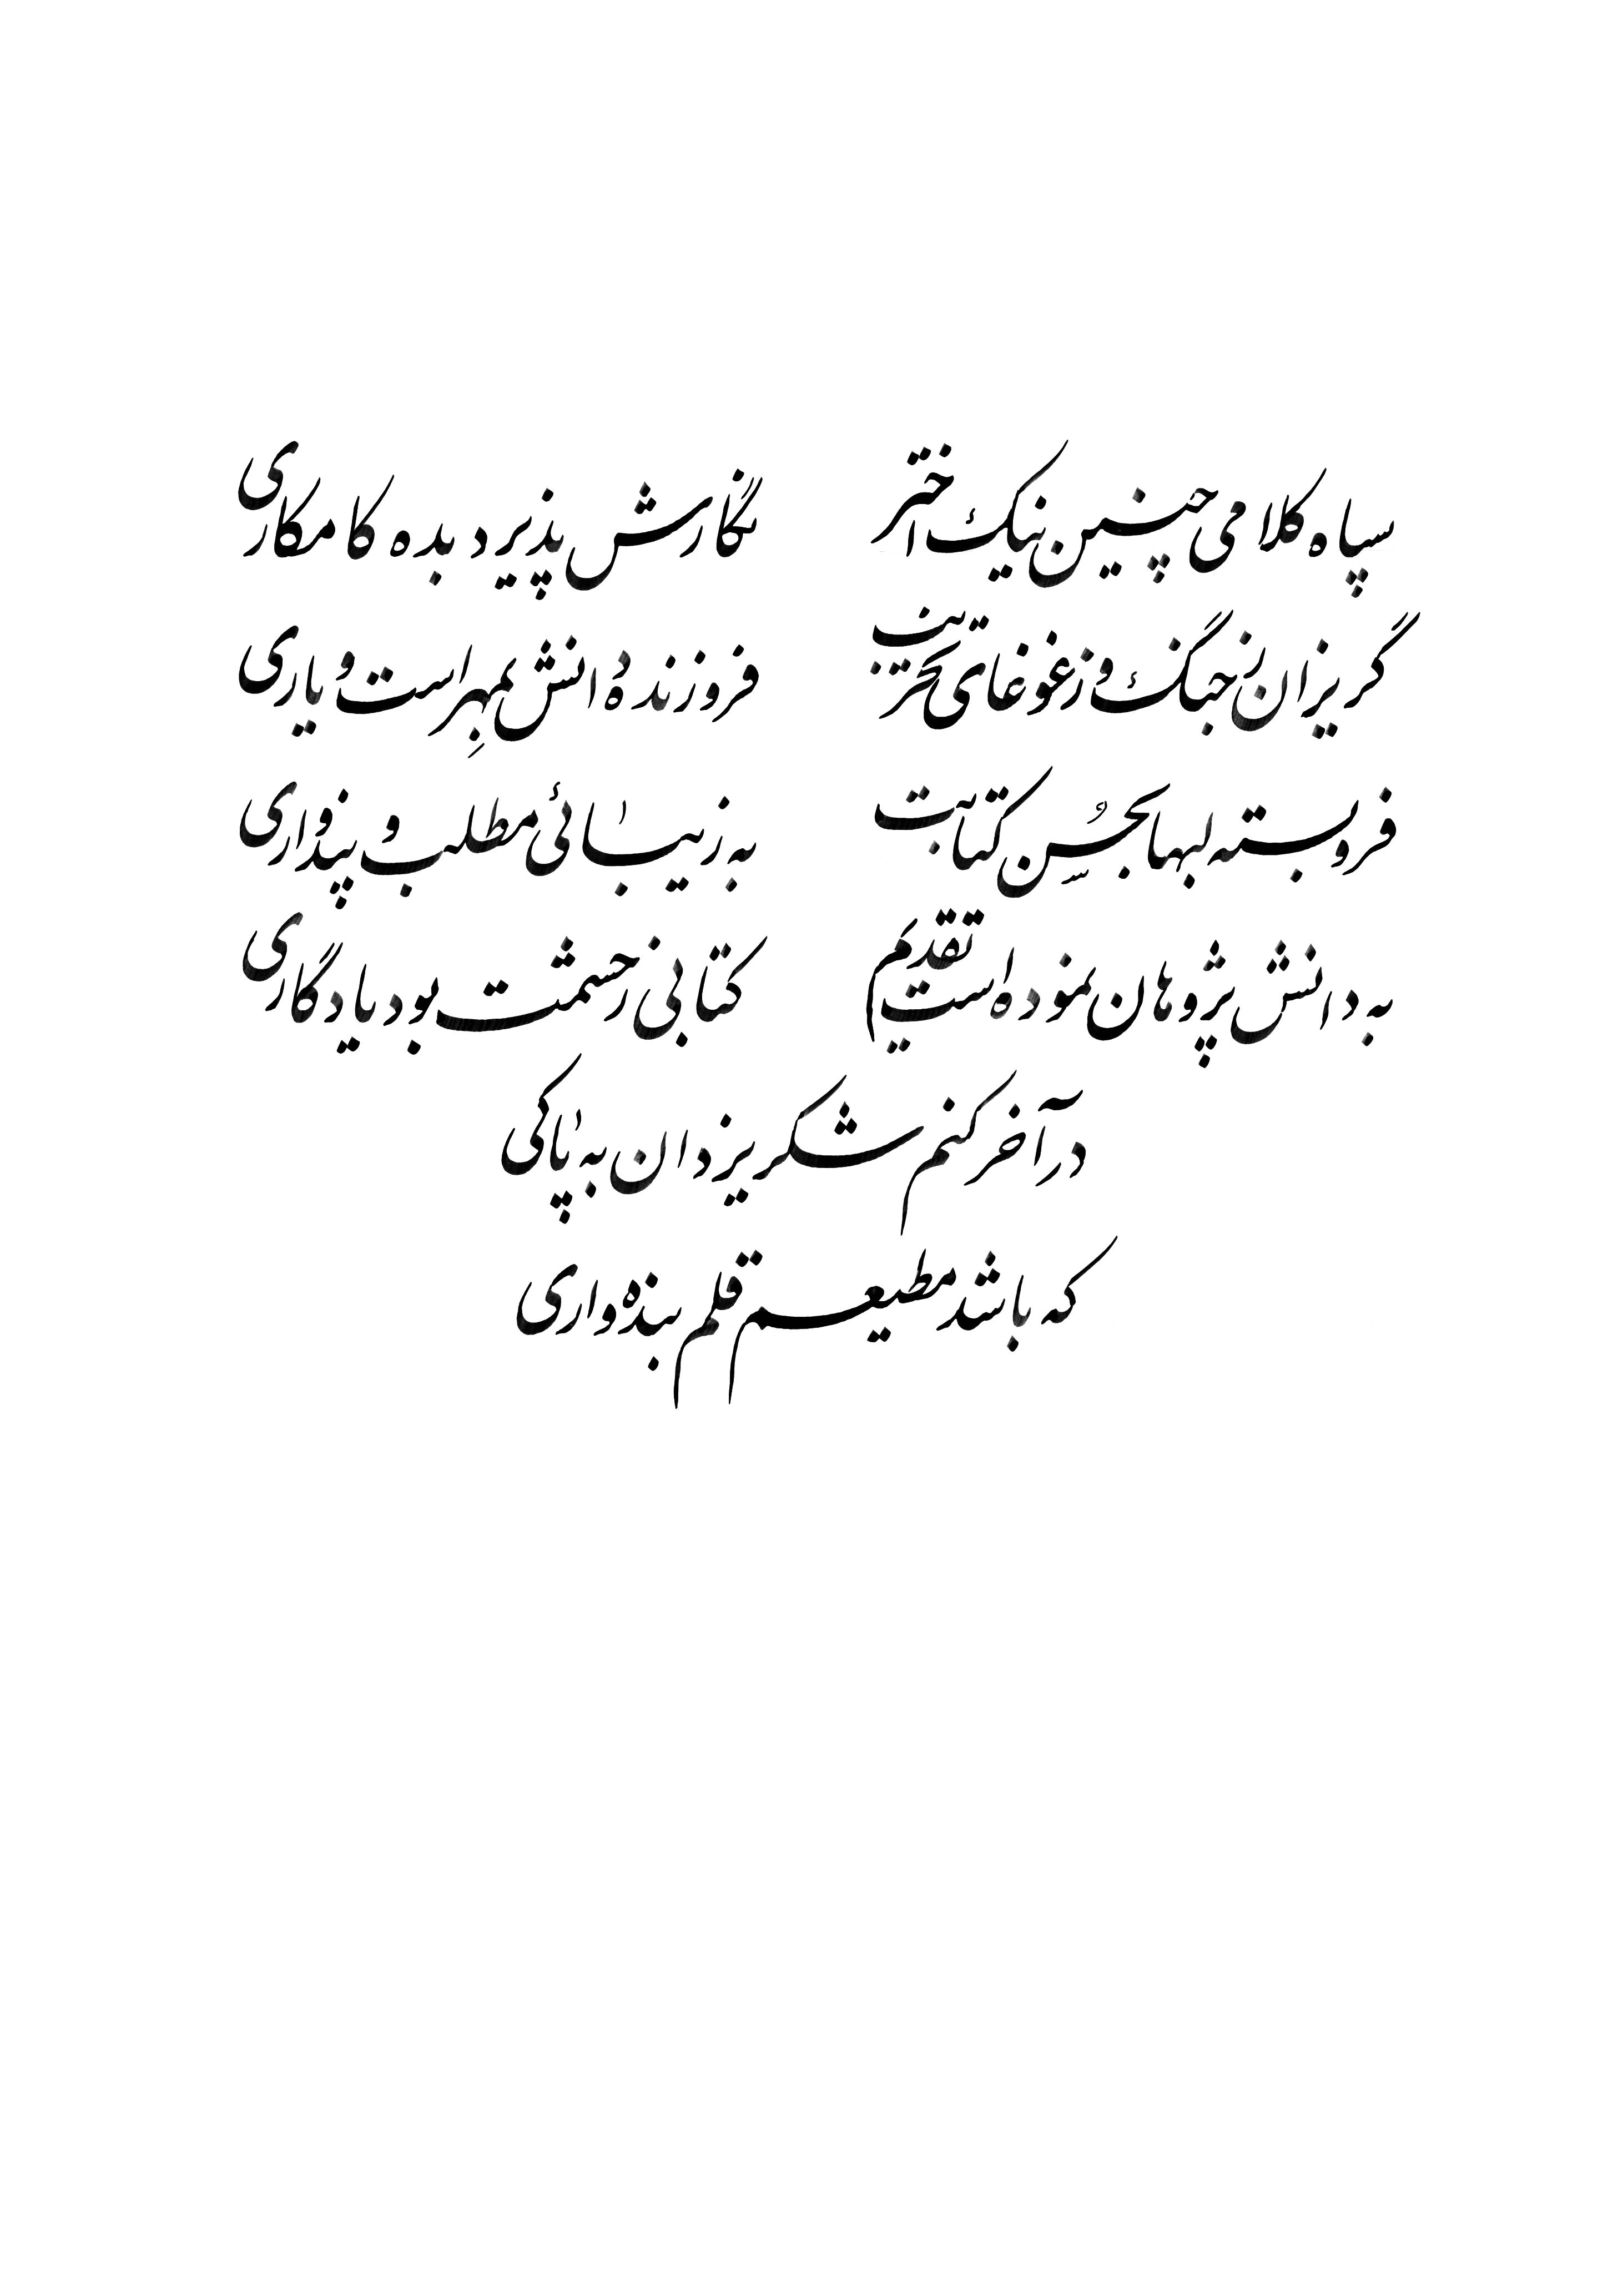 سپاه کلامی چنین نیک اختر نگارش پذیرد بده کامکاری
گریزان ز جنگ و ز غوغای فروزنده دانش و یاری
فروبسته لبها بجز حُسن کتابت به زیبائی مطلب و پنداری
به دانش پژوهان نموده است تقدیم کتابی ز حشمت بود یادگاری
در آخر کنم شکر یزدان به پاکی
که باشد مطیعم قلم بنده واری